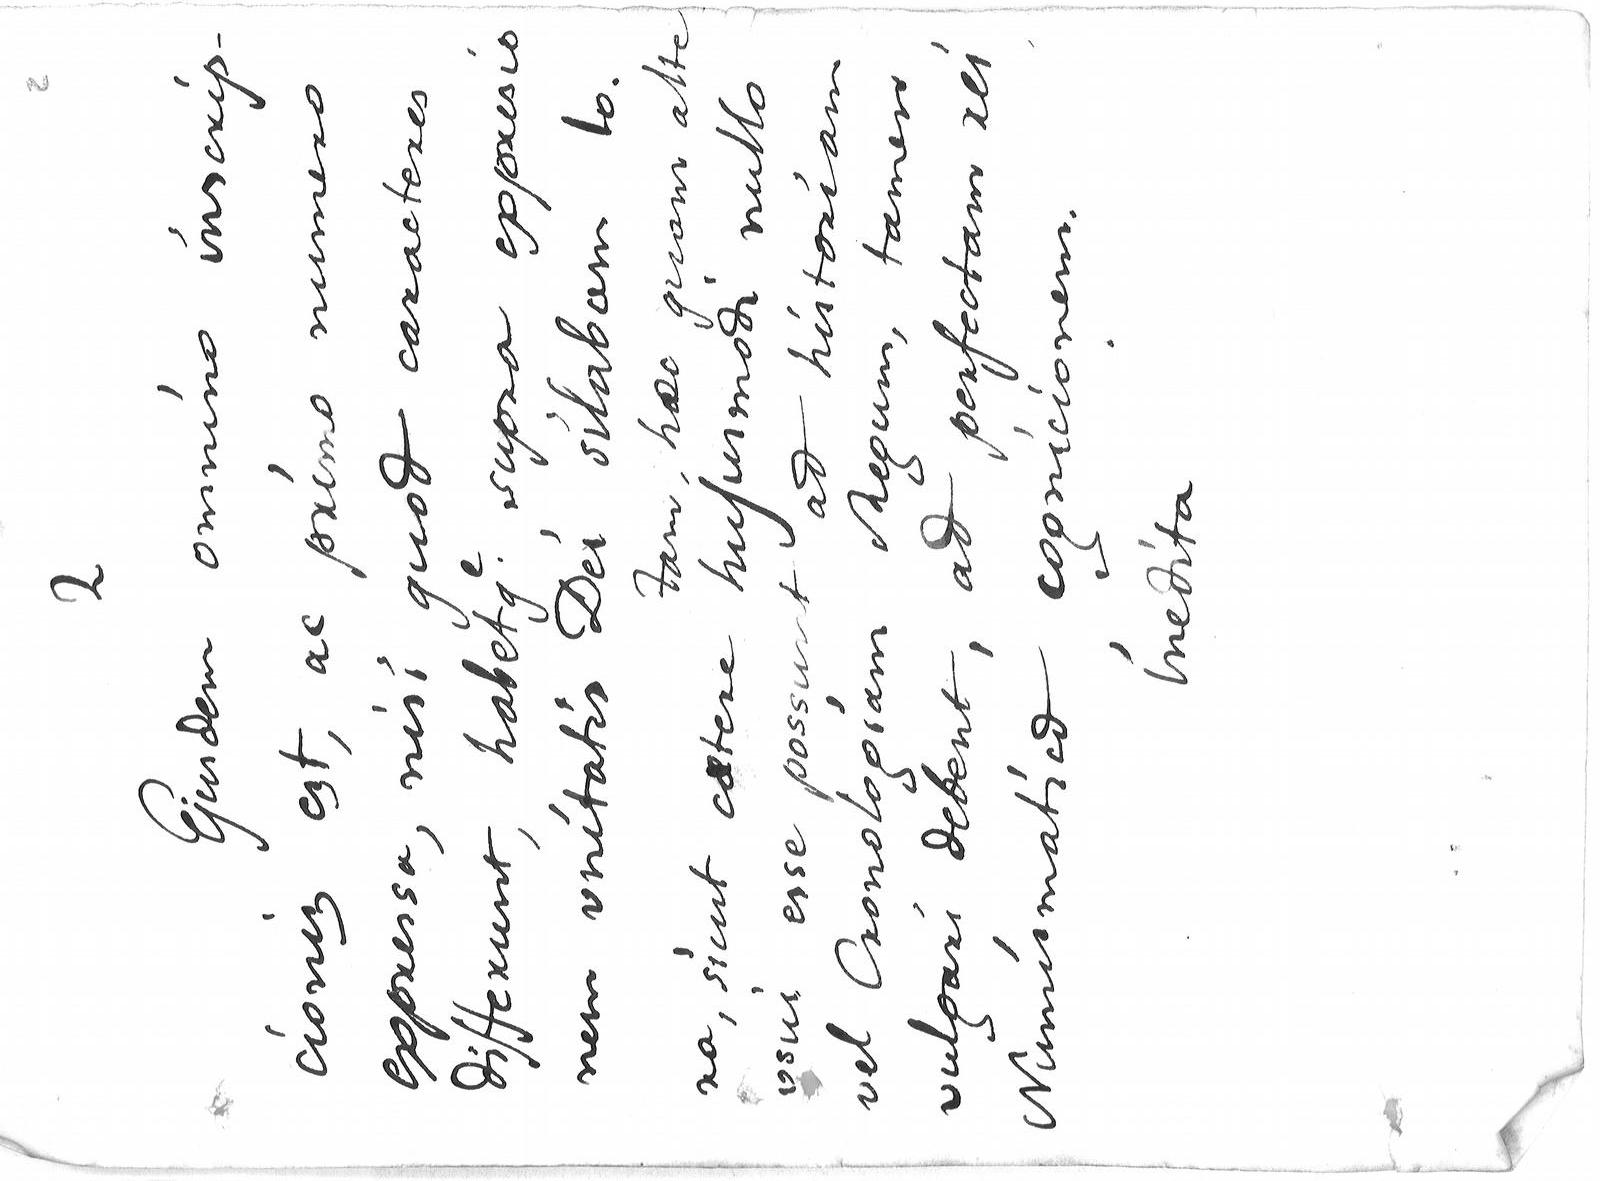 2
Ejusdem omníno ínscríp-
cionis est, ac prímo numero
expressa, nisí quod caracteres
differunt, habetq.e supra expresio
nem vnítatis Deí sílabam lo.
Tam, hæc quam alte
ra, sícut cætere hujusmodi nullo
vsui esse possunt ad historíam
vel Cronologíam Regum, tamen
vulgarí debent, ad perfectam reí
Numísmatícæ cognícíonem.
Inedíta
2